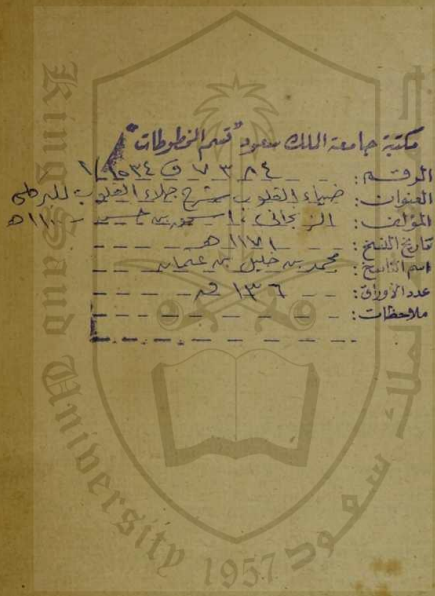 مكتبة جامعة الملك سعود "قسم المخطوطات"
الرقم: ٧٣٨٤ ف ١/١٥٣٤
العنوان: ضياء القلوب شرح جلاء القلوب للبركلي
المؤلف: الزنجاني، اسحق بن حسن - ١١٠٠هـ
تاريخ النسخ: ١١٧١ هـ
اسم الناسخ: محمد بن خليل بن عثمان
عدد الأوراق: ١٣٦ ق
ملاحظات:
King Saud University
جامعة الملك سعود
1957